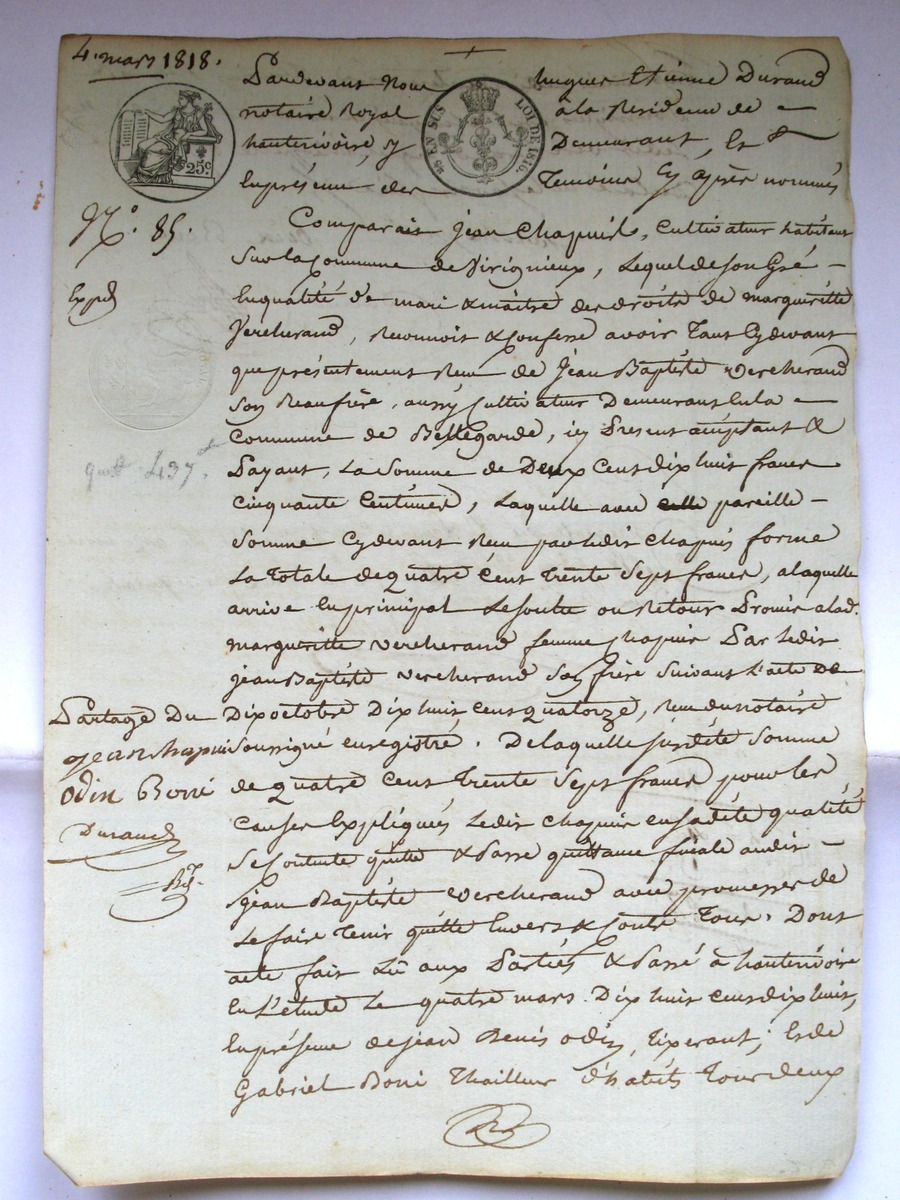 4. mars 1818.
Pardevant Nous hugues Etienne Durand
notaire Royal à la Residence de
hauterivoire, y Demeurant, Et
En présence des Temoins Cy après nommés
25c.
EN SUS LOI DE 1816.
N.º 85.
Expd
Comparait Jean Chapuis, Cultivateur habitant
Sur la Commune de Virigneux, Lequel de Son Gré
En qualité de mari & maitre des droits de margueritte
Vercherand, Reconnoit & Confesse avoir Tant Cydevant
que présentement Reçu de Jean Baptiste Vercherand
Son Beaufrère, aussy Cultivateur Demeurant En la
Commune de Bellegarde, icy Present acceptant &
Payant, La Somme de Deux Cent dix huit francs
quitt. 437.
Cinquante Centimes, Laquelle avec pareille
Somme Cydevant Reçu par Ledit Chapuis forme
La Totale de quatre Cent trente Sept francs, a laquelle
arrive En principal Le Soulte ou Retour Promis a lad.
margueritte Vercherand femme Chapuis Par Ledit
Jean Baptiste Vercherand Son frère Suivant L'acte de
Partage Du Dix octobre Dix huit Cent quatorze, Reçu du notaire
Jean chapuis Soussigné enregistré. De laquelle Susdite Somme
Odin Boni de quatre Cent trente Sept francs pour les
Causes Expliquées Ledit Chapuis en Sadite qualité
Durand
Se Contente quitte & Passe quittance finale audit
Jean Baptiste Vercherand avec promesses de
Le faire Tenir quitte Envers & Contre Tous. Dont
acte fait Lû aux Parties & Passé à hauterivoire
En L'étude Le quatre mars Dix huit Cent dix huit,
En présence de Jean Denis Odin, Tixerant, Et de
Gabriel Boni Thailleur d'habits Tous deux